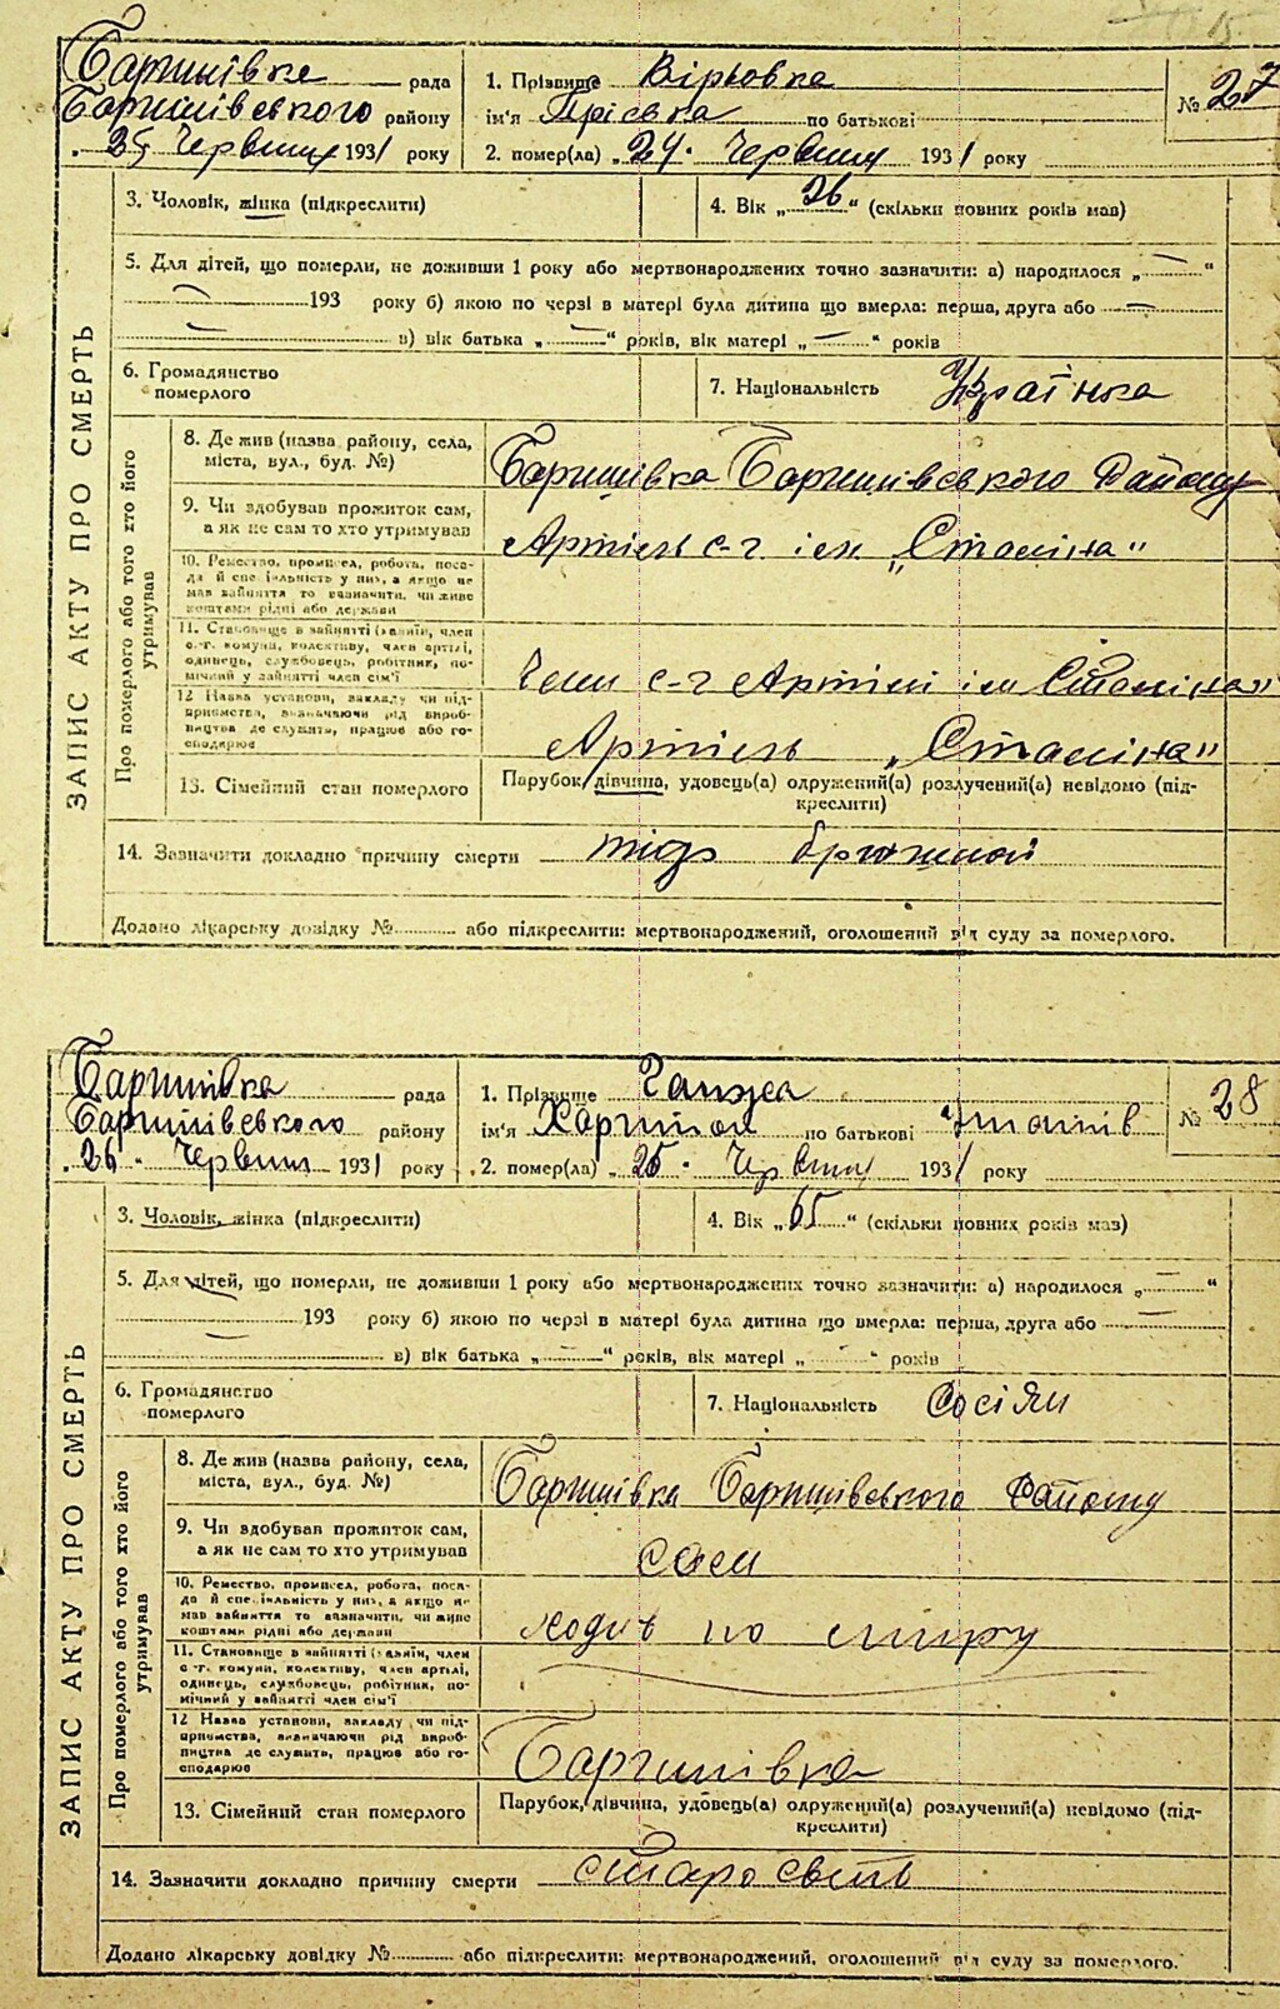 15.
Баришівка рада
Баришівського району
„25 Червня 1931 року
1. Прізвище Вірьовка
ім'я Пріська по батькові
2. помер(ла) „24" Червня 1931 року
№ 27
ЗАПИС АКТУ ПРО СМЕРТЬ
3. Чоловік, жінка (підкреслити)
4. Вік „26" (скільки повних років мав)
5. Для дітей, що померли, не доживши 1 року або мертвонароджених точно зазначити: а) народилося „—"
— 193 року б) якою по черзі в матері була дитина що вмерла: перша, друга або —
— в) вік батька „—" років, вік матері „—" років
6. Громадянство
померлого
7. Національність Українка
Про померлого або того хто його
утримував
8. Де жив (назва району, села,
міста, вул., буд. №)
Баришівка Баришівського Району
9. Чи здобував прожиток сам,
а як не сам то хто утримував
Артіль с-г ім „Сталіна"
10. Ремество, промисел, робота, поса-
да й спеціяльність у них, а якщо не
мав зайняття то зазначити, чи живе
коштами рідні або держави
11. Становище в зайнятті (хазяїн, член
с.-г. комуни, колективу, член артілі,
одинець, службовець, робітник, по-
мічний у зайнятті член сім'ї
Член с-г Артілі ім Сталіна"
12 Назва установи, закладу чи під-
приємства, визначаючи рід вироб-
ництва де служить, працює або го-
сподарює
Артіль „Сталіна"
13. Сімейний стан померлого
Парубок, дівчина, удовець(а) одружений(а) розлучений(а) невідомо (під-
креслити)
14. Зазначити докладно причину смерти
Додано лікарську довідку № або підкреслити: мертвонароджений, оголошений від суду за померлого.
Баришівка рада
Баришівського району
„26" Червня 1931 року
1. Прізвище Ганжа
ім'я Харитон по батькові
2. помер(ла) „25" Червня 1931 року
№ 28
ЗАПИС АКТУ ПРО СМЕРТЬ
3. Чоловік, жінка (підкреслити)
4. Вік „65" (скільки повних років мав)
5. Для дітей, що померли, не доживши 1 року або мертвонароджених точно зазначити: а) народилося „—"
193 року б) якою по черзі в матері була дитина що вмерла: перша, друга або —
— в) вік батька „—" років, вік матері „—" років
6. Громадянство
померлого
7. Національність Росіян
Про померлого або того хто його
утримував
8. Де жив (назва району, села,
міста, вул., буд. №)
Баришівка Баришівського Району
9. Чи здобував прожиток сам,
а як не сам то хто утримував
сам
10. Ремество, промисел, робота, поса-
да й спеціяльність у них, а якщо не
мав зайняття то зазначити, чи живе
коштами рідні або держави
ходив по миру
11. Становище в зайнятті (хазяїн, член
с.-г. комуни, колективу, член артілі,
одинець, службовець, робітник, по-
мічний у зайнятті член сім'ї
12 Назва установи, закладу чи під-
приємства, визначаючи рід вироб-
ництва де служить, працює або го-
сподарює
Баришівка
13. Сімейний стан померлого
Парубок, дівчина, удовець(а) одружений(а) розлучений(а) невідомо (під-
креслити)
14. Зазначити докладно причину смерти старосвть
Додано лікарську довідку № або підкреслити: мертвонароджений, оголошений від суду за померлого.